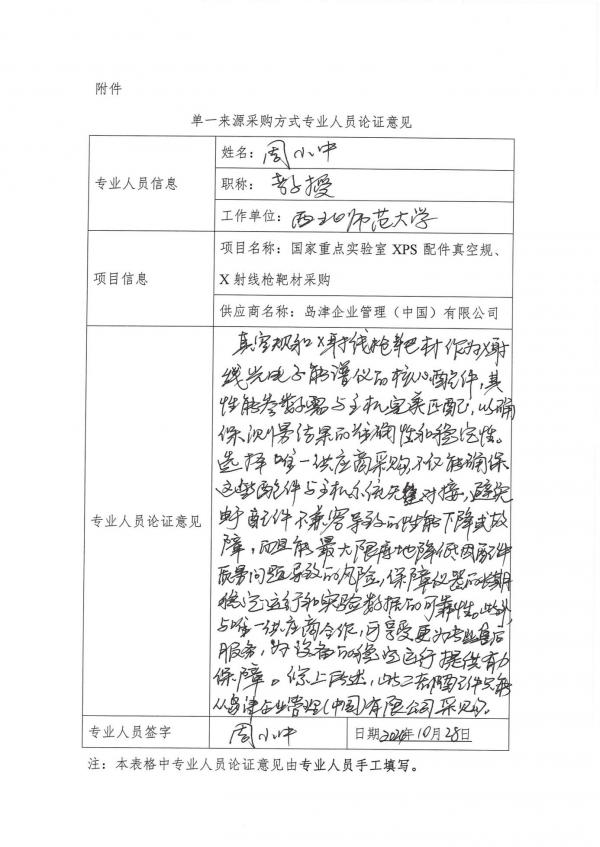 附件
单一来源采购方式专业人员论证意见
专业人员信息
姓名：周小中
职称：教授
工作单位：西北师范大学
项目信息
项目名称：国家重点实验室 XPS 配件真空规、
X 射线枪靶材采购
供应商名称：岛津企业管理（中国）有限公司
专业人员论证意见
真空规和X射线枪靶材作为X射
线光电子能谱仪的核心配件，其
性能参数需与主机完美匹配，以确
保测量结果的准确性和稳定性。
选择唯一供应商采购，不仅能确保
这些配件与主机系统无缝对接，避免
由于配件不兼容导致的性能下降或故
障，而且能最大限度地降低因配件
质量问题导致的风险，保障仪器的长期
稳定运行和实验数据的可靠性。此外，
与唯一供应商合作，可享受更为专业售后
服务，为设备的稳定运行提供有力
保障。综上所述，此二种配件只能
从岛津企业管理(中国)有限公司采购。
专业人员签字
周小中
日期2024年10月28日
注：本表格中专业人员论证意见由专业人员手工填写。